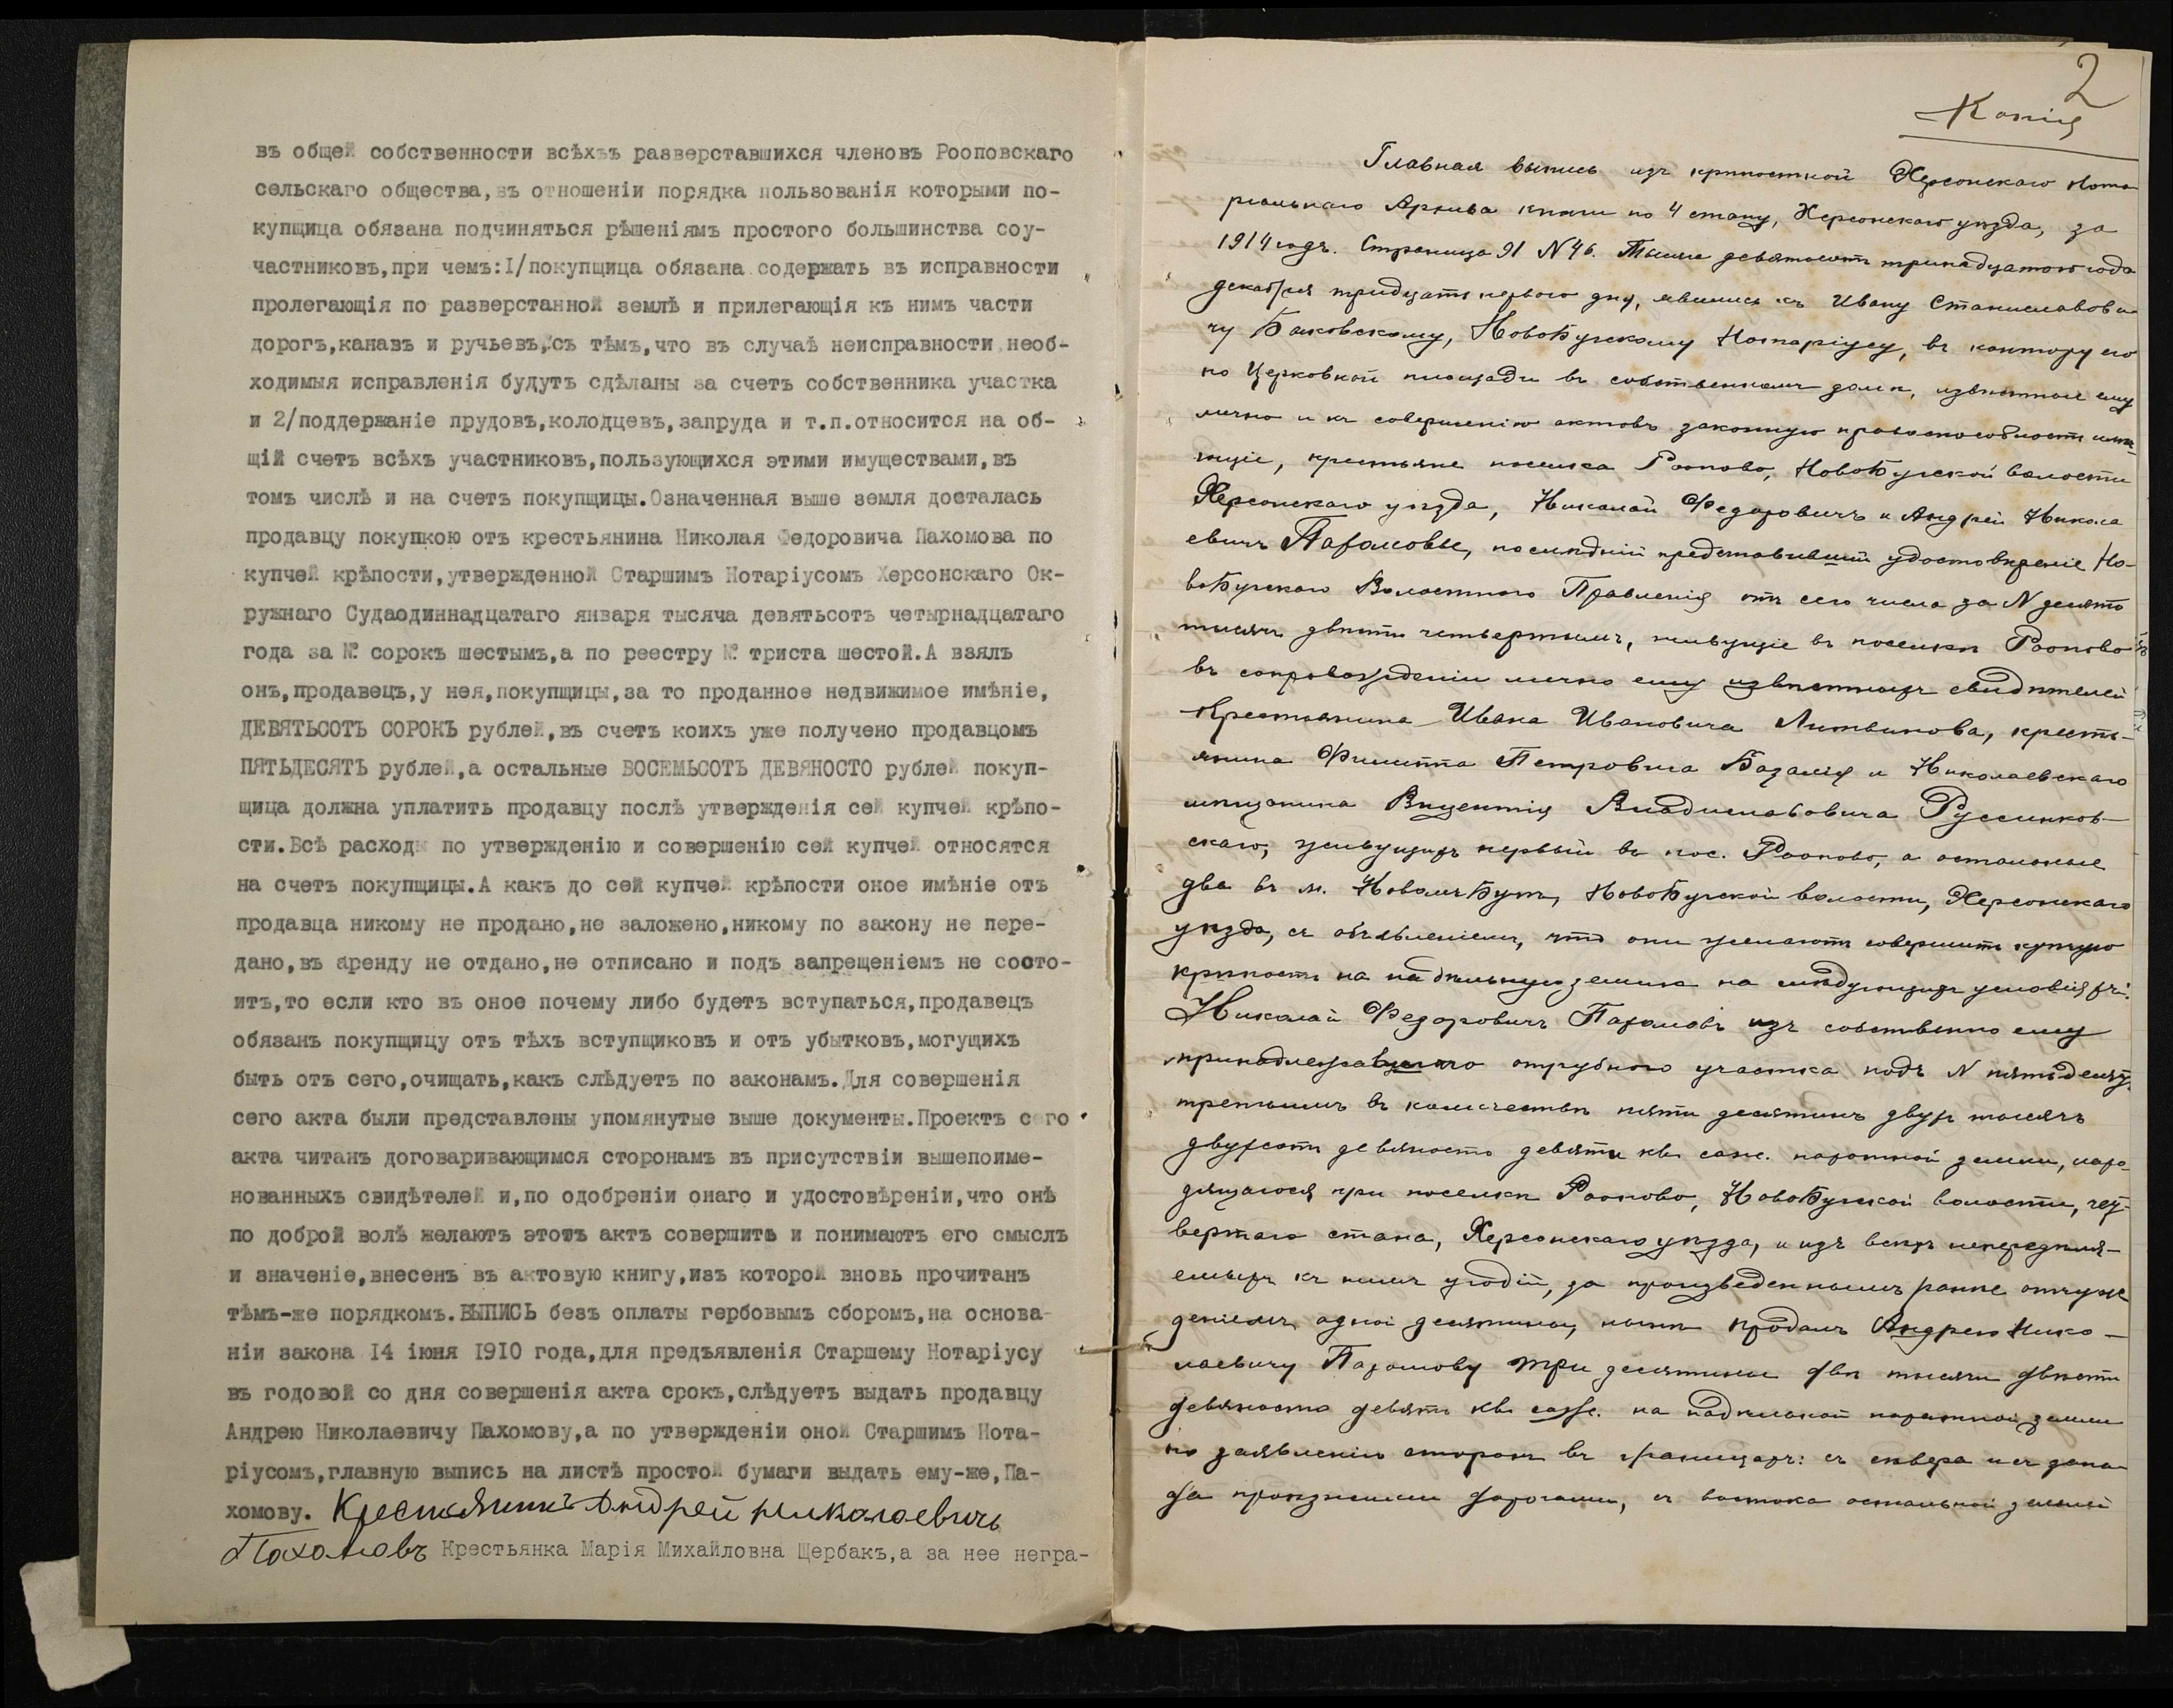 въ общей собственности всѣхъ разверставшихся членовъ Рооповскаго
сельскаго общества,въ отношеніи порядка пользованія которыми по-
купщица обязана подчиняться рѣшеніямъ простого большинства соу-
частниковъ,при чемъ:I/покупщица обязана содержать въ исправности
пролегающія по разверстанной землѣ и прилегающія къ нимъ части
дорогъ,канавъ и ручьевъ,съ тѣмъ,что въ случаѣ неисправности необ-
ходимыя исправленія будутъ сдѣланы за счетъ собственника участка
и 2/поддержаніе прудовъ,колодцевъ,запруда и т.п.относится на об-
щій счетъ всѣхъ участниковъ,пользующихся этими имуществами,въ
томъ числѣ и на счетъ покупщицы.Означенная выше земля досталась
продавцу покупкою отъ крестьянина Николая Федоровича Пахомова по
купчей крѣпости,утвержденной Старшимъ Нотаріусомъ Херсонскаго Ок-
ружнаго Судаодиннадцатаго января тысяча девятьсотъ четырнадцатаго
года за № сорокъ шестымъ,а по реестру № триста шестой.А взялъ
онъ,продавецъ,у нея,покупщицы,за то проданное недвижимое имѣніе,
ДЕВЯТЬСОТЪ СОРОКЪ рублей,въ счетъ коихъ уже получено продавцомъ
ПЯТЬДЕСЯТЪ рублей,а остальные ВОСЕМЬСОТЪ ДЕВЯНОСТО рублей покуп-
щица должна уплатить продавцу послѣ утвержденія сей купчей крѣпо-
сти.Всѣ расходы по утвержденію и совершенію сей купчей относятся
на счетъ покупщицы.А какъ до сей купчей крѣпости оное имѣніе отъ
продавца никому не продано,не заложено,никому по закону не пере-
дано,въ аренду не отдано,не отписано и подъ запрещеніемъ не состо-
итъ,то если кто въ оное почему либо будетъ вступаться,продавецъ
обязанъ покупщицу отъ тѣхъ вступщиковъ и отъ убытковъ,могущихъ
быть отъ сего,очищать,какъ слѣдуетъ по законамъ.Для совершенія
сего акта были представлены упомянутые выше документы.Проектъ сего
акта читанъ договаривающимся сторонамъ въ присутствіи вышепоиме-
нованныхъ свидѣтелей и,по одобреніи онаго и удостовѣреніи,что онѣ
по доброй волѣ желаютъ этотъ актъ совершить и понимаютъ его смыслъ
и значеніе,внесенъ въ актовую книгу,изъ которой вновь прочитанъ
тѣмъ-же порядкомъ.ВЫПИСЬ безъ оплаты гербовымъ сборомъ,на основа-
ніи закона I4 іюня I9I0 года,для предъявленія Старшему Нотаріусу
въ годовой со дня совершенія акта срокъ,слѣдуетъ выдать продавцу
Андрею Николаевичу Пахомову,а по утвержденіи оной Старшимъ Нота-
ріусомъ,главную выпись на листѣ простой бумаги выдать ему-же,Па-
хомову. Крестьянинъ Андрей Николаевичъ
Пахомовъ Крестьянка Марія Михайловна Щербакъ,а за нее негра-
2
Копія
Главная выпись изъ крѣпостной Херсонскаго Нота-
ріальнаго Архива книги по 4 стану, Херсонскаго уѣзда, за
1914 годъ. Страница 91 N 46. Тысяча девятьсотъ тринадцатаго года
декабря тридцать перваго дня, явились къ Ивану Станиславови-
чу Баковскому, НовоБугскому Нотаріусу, въ контору его
по Церковной площади въ собственномъ домѣ, извѣстные ему
лично и къ совершенію актовъ законную правоспособность имѣ-
ющіе, крестьяне поселка Роопово, НовоБугской волости
Херсонскаго уѣзда, Николай Федоровичъ и Андрей Никола
евичъ Пахомовы, послѣдній представившій удостовѣреніе Но-
воБугского Волостного Правленія отъ сего числа за N десять
тысячъ двѣсти четвертымъ, живущіе въ поселкѣ Роопово
въ сопровожденіи лично ему извѣстныхъ свидѣтелей
Крестьянина Ивана Ивановича Литвинова, кресть-
янина Филиппа Петровича Базалія и Николаевскаго
мѣщанина Викентія Владиславовича Руссинков-
скаго, живущихъ первый въ пос. Роопово, а остальные
два въ м. Новомъ Бугѣ, НовоБугской волости, Херсонскаго
уѣзда, съ объявленіемъ, что они желаютъ совершить купчую
крѣпость на надѣльную землю на слѣдующихъ условіяхъ:
Николай Федоровичъ Пахомовъ изъ собственно ему
принадлежавшаго отрубного участка подъ N пятьдесятъ
третьимъ въ количествѣ пяти десятинъ двухъ тысячъ
двухсотъ девяносто девяти кв. саж. пахотной земли, нахо-
дящагося при поселкѣ Роопово, НовоБугской волости, чет-
вертаго стана, Херсонскаго уѣзда, и изъ всѣхъ непередѣля-
емыхъ къ нимъ угодій, за произведеннымъ ранѣе отчуж
деніемъ одной десятины, нынѣ продалъ Андрею Нико-
лаевичу Пахомову три десятины двѣ тысячи двѣсти
девяносто девять кв. саж. на надѣльной пахотной земли
по заявленію сторонъ въ границахъ: съ сѣвера и съ запа-
да проѣзжими дорогами, съ востока остальной землей